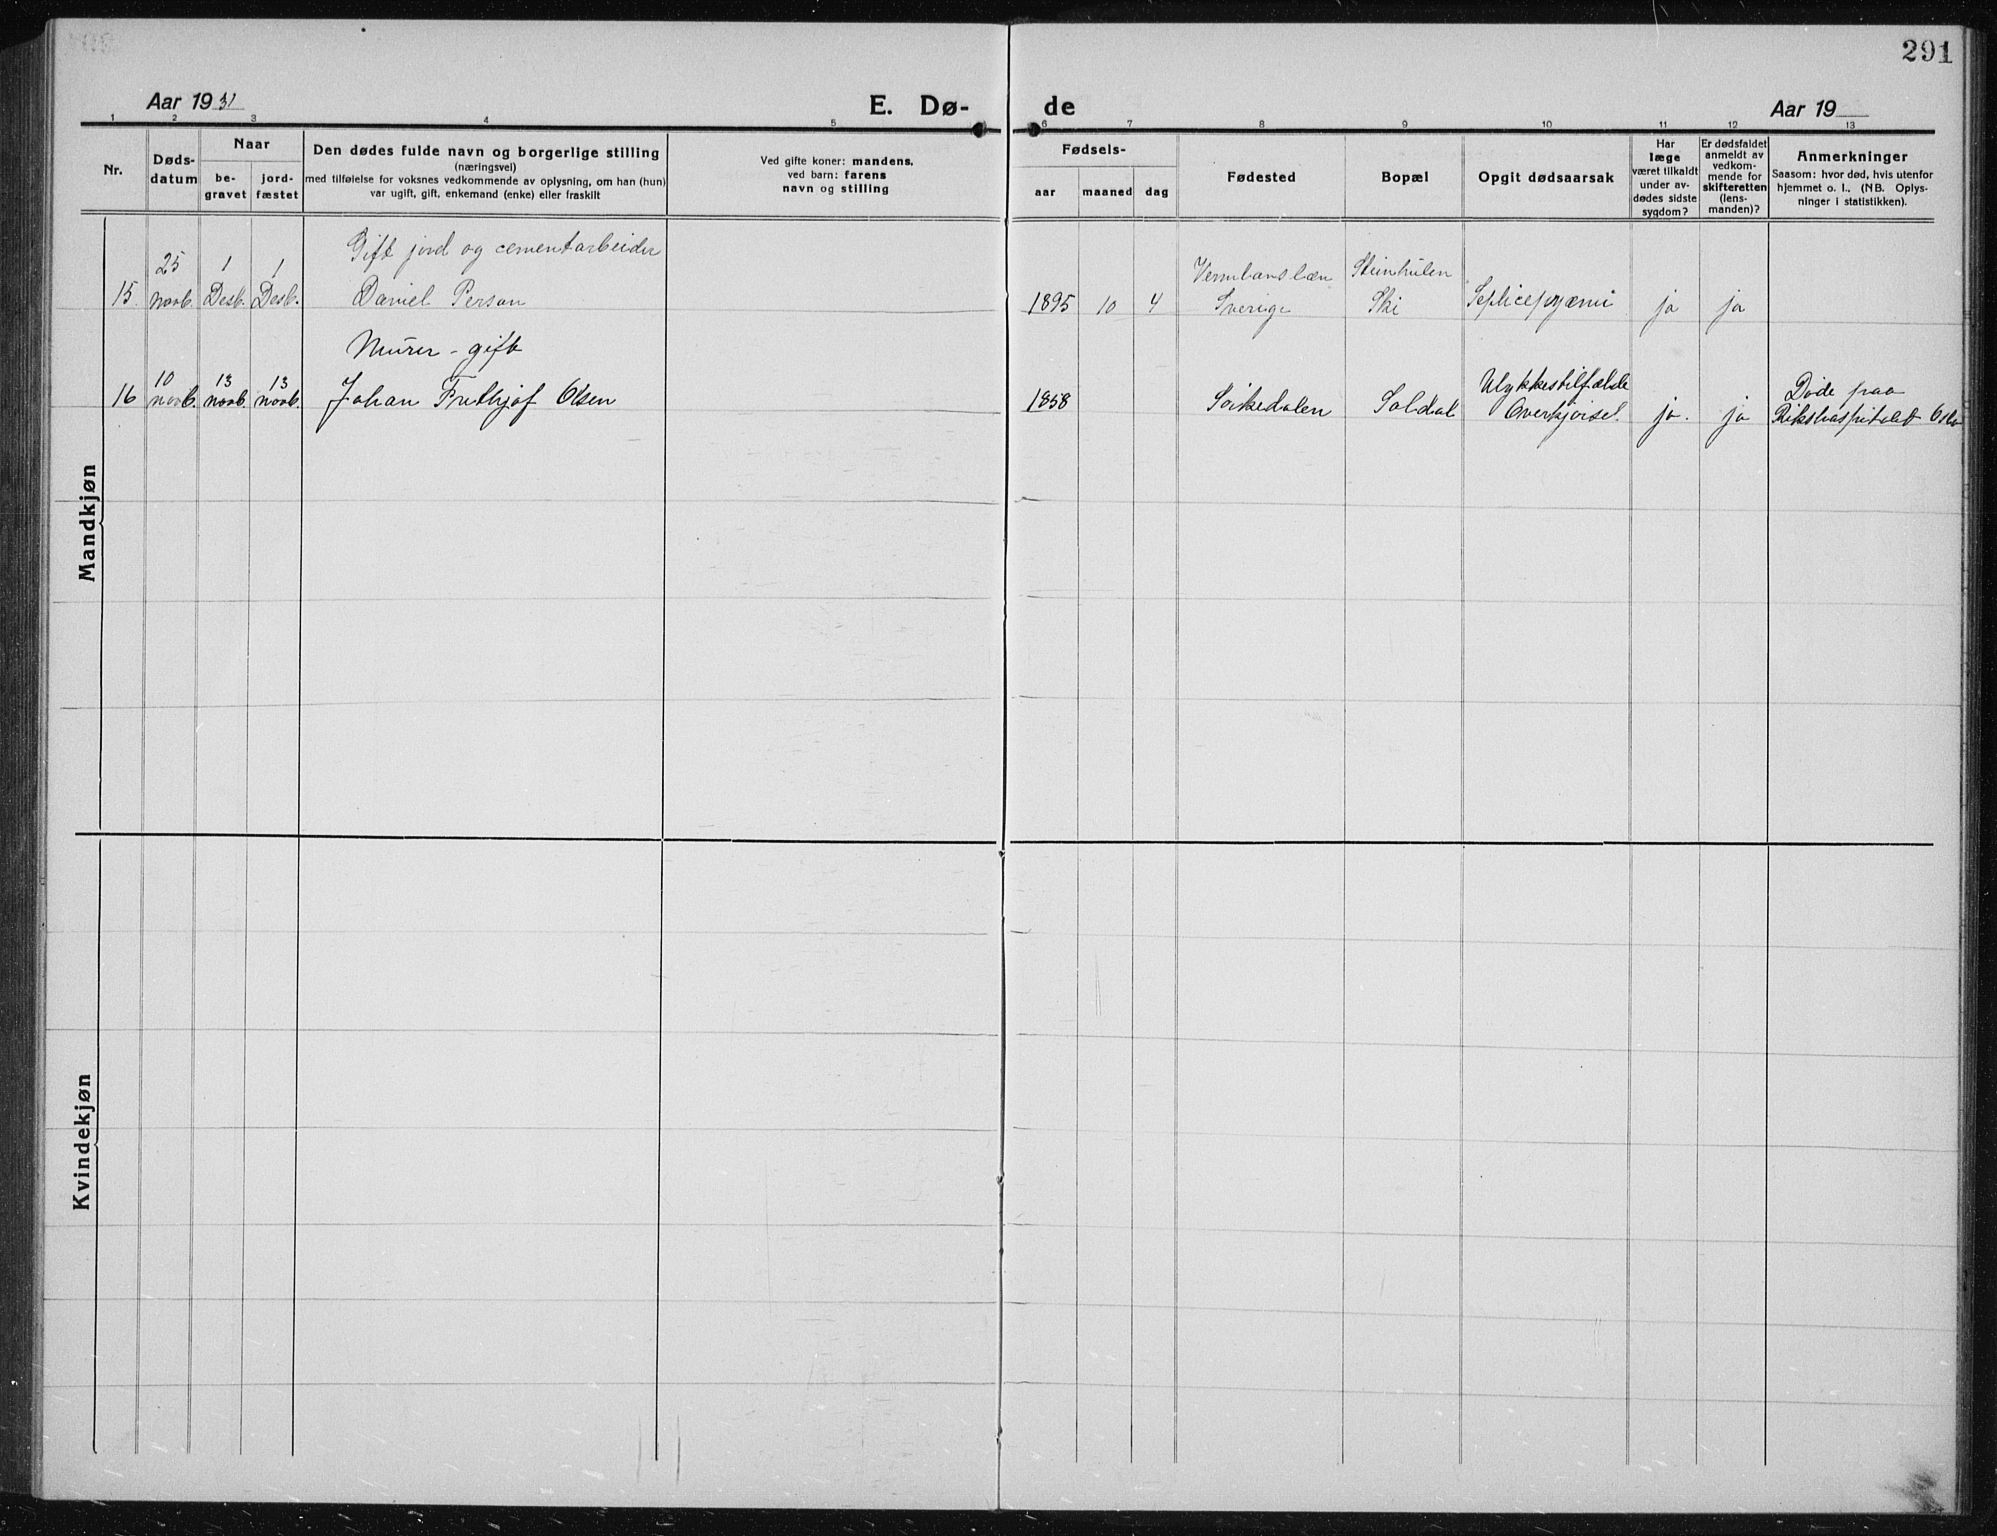 291
Aar 1931
E. Dø-
de
Aar 19
1 2 3 4 5 6 7 8 9 10 11 12 13
Nr.
Døds-
datum
Naar
be-
gravet
jord-
fæstet
Den dødes fulde navn og borgerlige stilling
(næringsvei)
med tilføielse for voksnes vedkommende av oplysning, om han (hun)
var ugift, gift, enkemand (enke) eller fraskilt
Ved gifte koner: mandens,
ved barn: farens
navn og stilling
Fødsels-
aar
maaned
dag
Fødested
Bopæl
Opgit dødsaarsak
Har
læge
været tilkaldt
under av-
dødes sidste
sygdom?
Er dødsfaldet
anmeldt av
vedkom-
mende for
skifteretten
(lens-
manden)?
Anmerkninger
Saasom: hvor død, hvis utenfor
hjemmet o. l., (NB. Oplys-
ninger i statistikken).
Mandkjøn
Gift jord og cementarbeider
25 1 1
15. novb. Desb. Desb. Daniel Person
1895 10 4
Sverige
Ski
ja ja
Murer - gift
10 13 13
16 novb. novb. novb. Johan Frithjof Olsen
1858
Sørkedalen
Soldal
Ulykkestilfælde
Overkjørsel.
ja. ja
Døde paa
Rikshaspitalet Oslo
Kvindekjøn